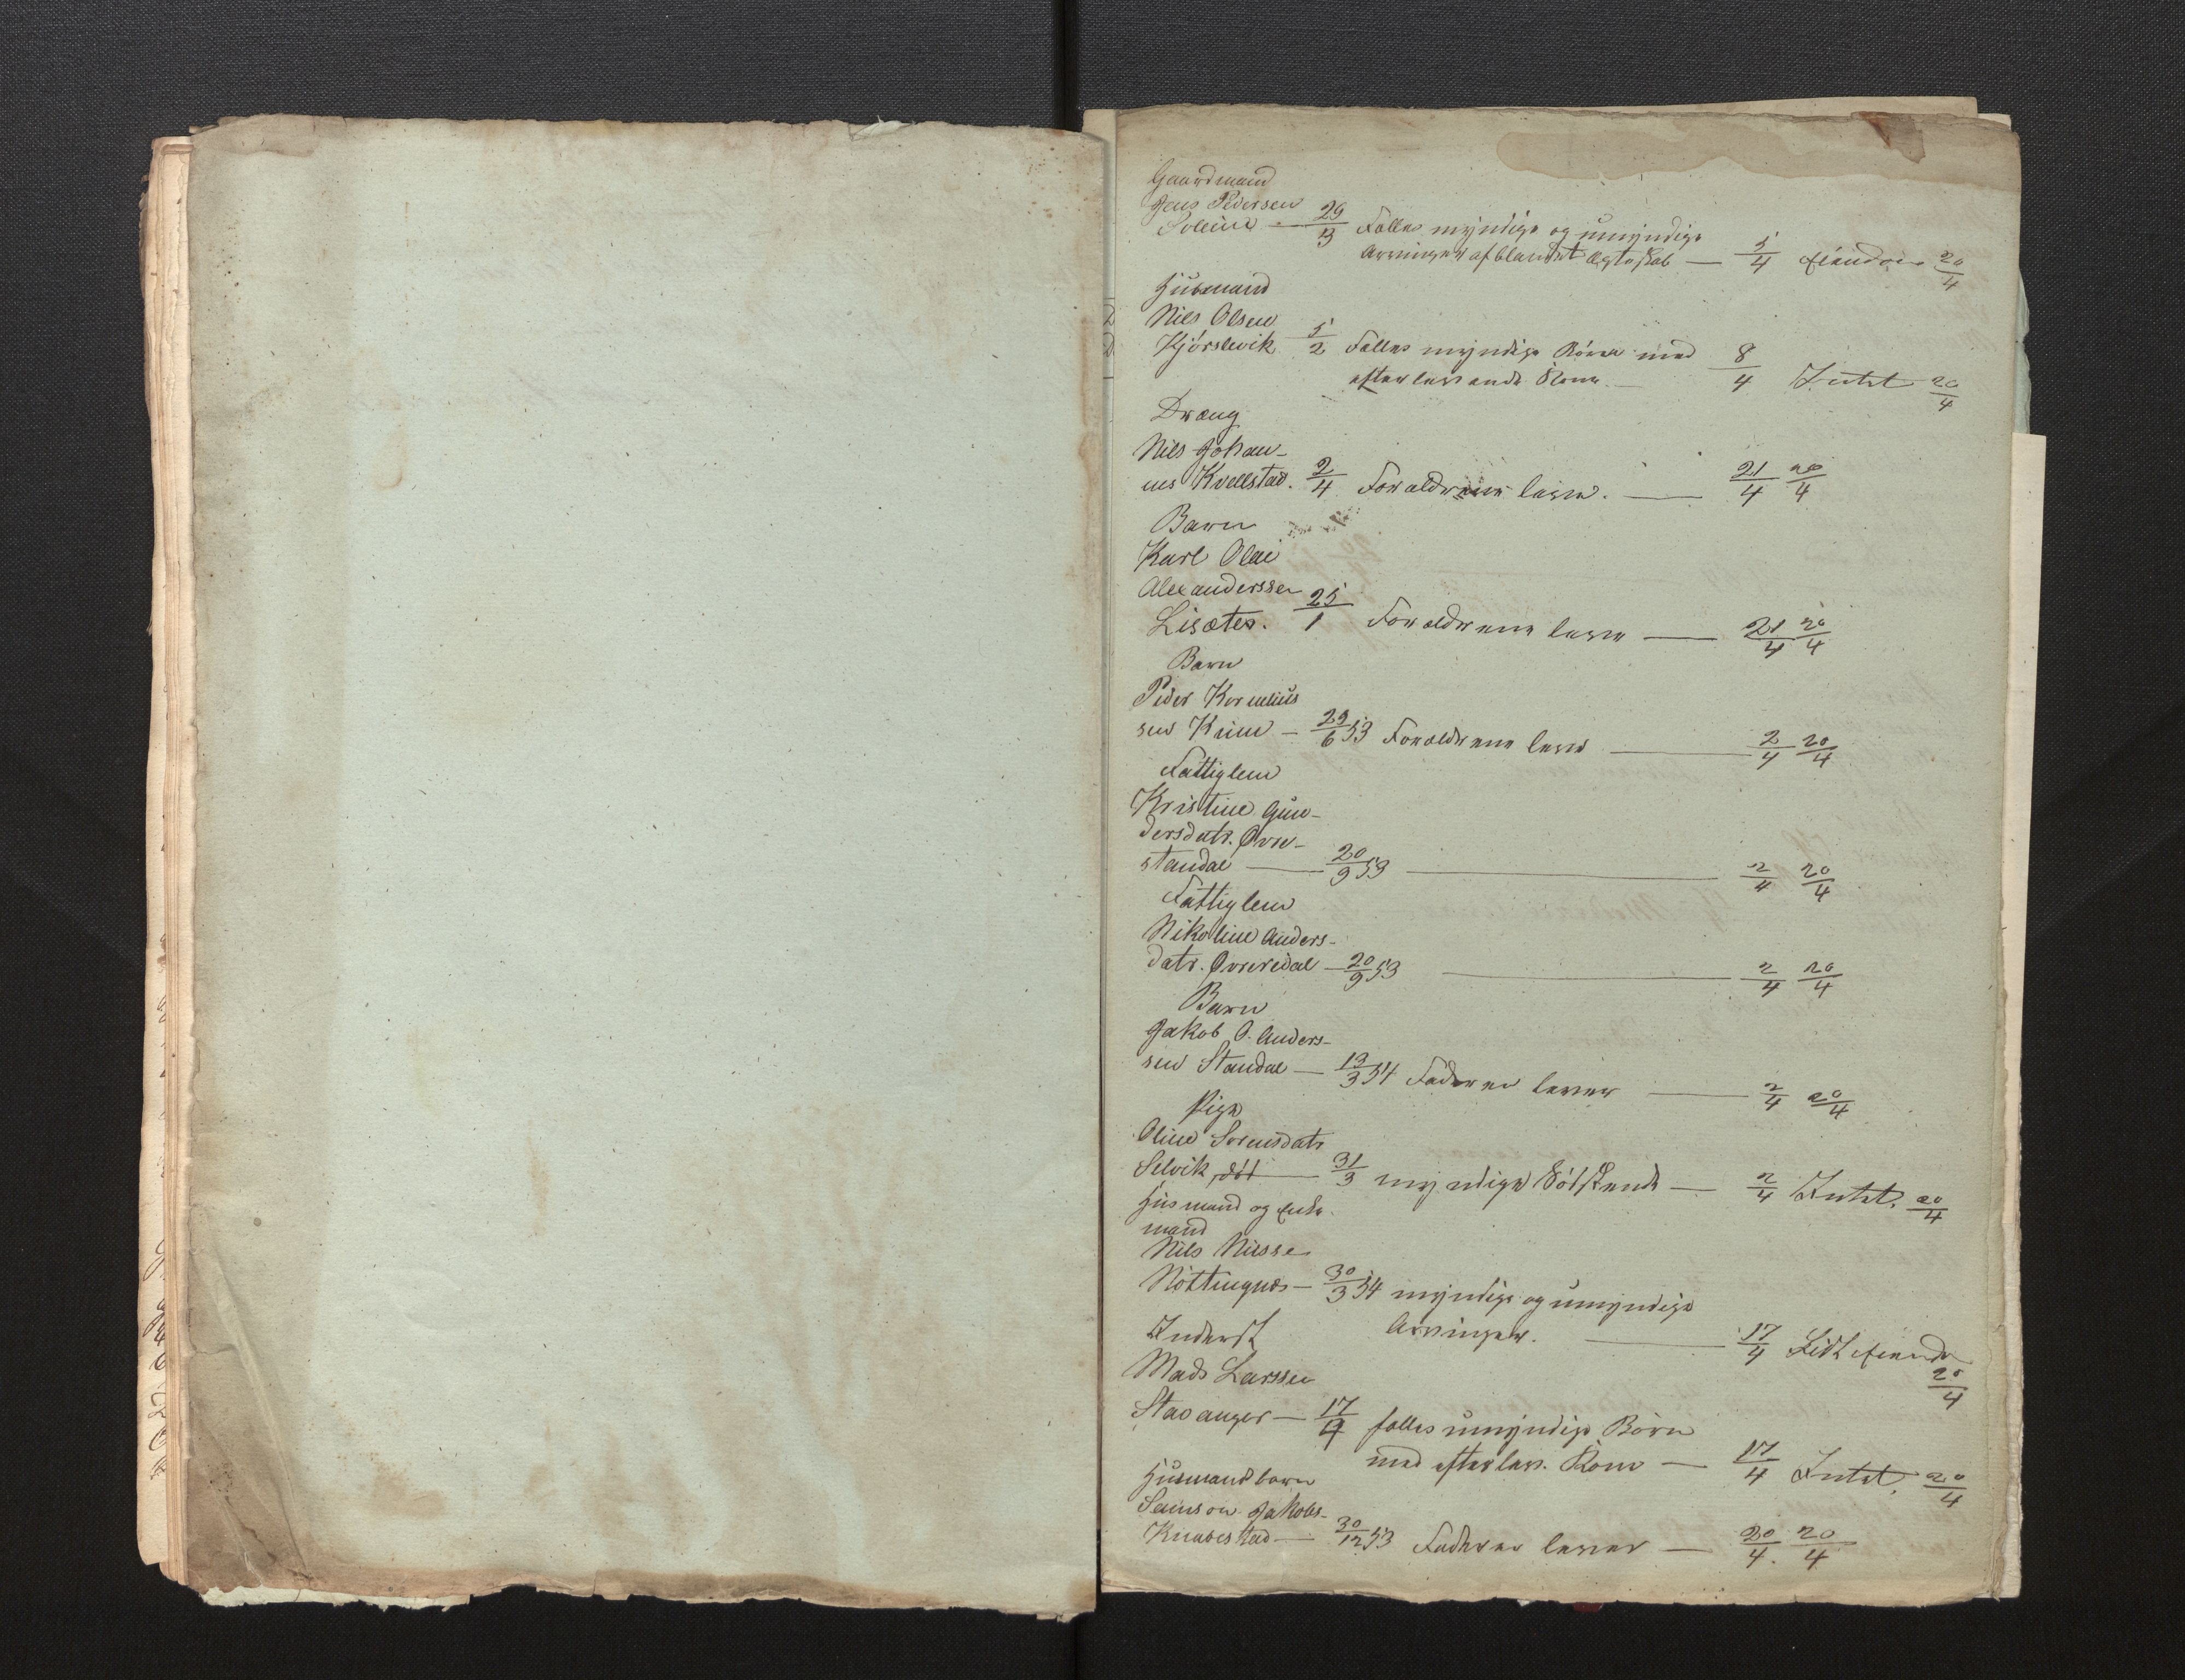 Gaardmand
Jens Pedersen
Soleim — 29/3 Fælles myndige og umyndige
Arvinger af blandet Ægteskab — 5/4 Eiendom 20/4
Husmand
Nils Olsen
Kjörslevik 5/2 Fælles myndige Börn med 8/4 Intet 20/4
efterlevende Kone. —
Dræng
Nils Johan-
nes Kvellstad. 2/4 Forældrene leve. — 21/4 20/4
Barn
Karl Olai
Alexanderssen
Lisæter. 25/1 Forældrene leve — 21/4 20/4
Barn
Peder Kornelius
sen Krum — 29/6 53 Forældrene leve — 2/4 20/4
Fattiglem
Kristine Gun-
dersdatr. Øvre-
standal — 20/9 53 — 2/4 20/4
Fattiglem
Nikoline Anders-
datr. Øvreridal — 20/9 53 — 2/4 20/4
Barn
Jakob O. Anders-
sen Standal — 19/3 54 Faderen lever — 2/4 20/4
Pige
Oline Sorensdatr
Selvik, döt — 31/3 myndige Södskende — 2/4 Intet. 20/4
Husmand og Enke-
mand
Nils Nilssen
Nöttingnes — 30/3 54 myndige og umyndige
Arvinger. — 17/4 Lidt Eiendom
20/4
Inderst
Mads Larssen
Stavanger — 17/4 fælles umyndige Börn
med efterlev. Kone — 17/4 Intet. 20/4
Husmandsbarn
Samson Jakobs-
Knabestad — 30/12 53 Faderen lever — 20/4. 20/4